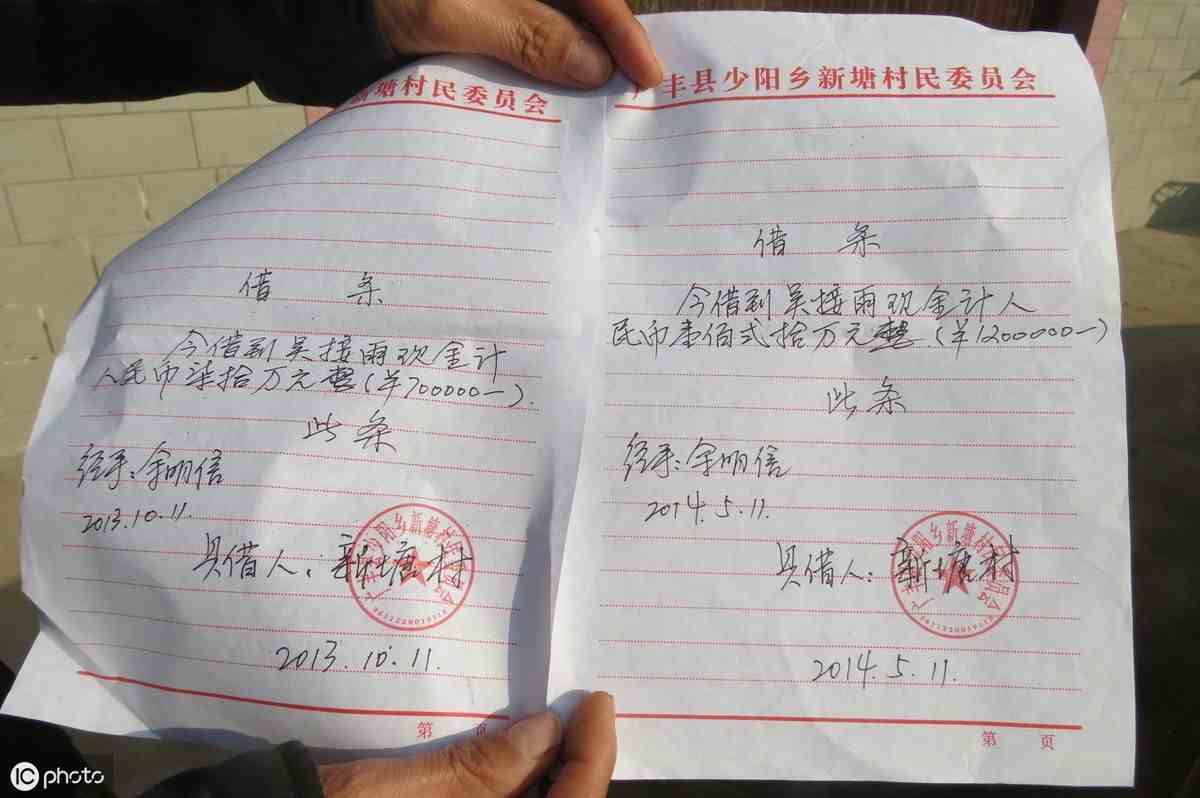 新塘村民委员会
借 条
今借到吴接雨现金计
人民币柒拾万元整(¥700000—).
此条
经手:余明信
2013.10.11.
具借人:新塘村
2013.10.11.
第 页
丰县少阳乡新塘村民委员会
借 条
今借到吴接雨现金计人
民币壹佰弍拾万元整.(¥1200000—)
此条
经手:余明信
2014.5.11.
具借人:新塘村
2014.5.11.
第 页
iC photo